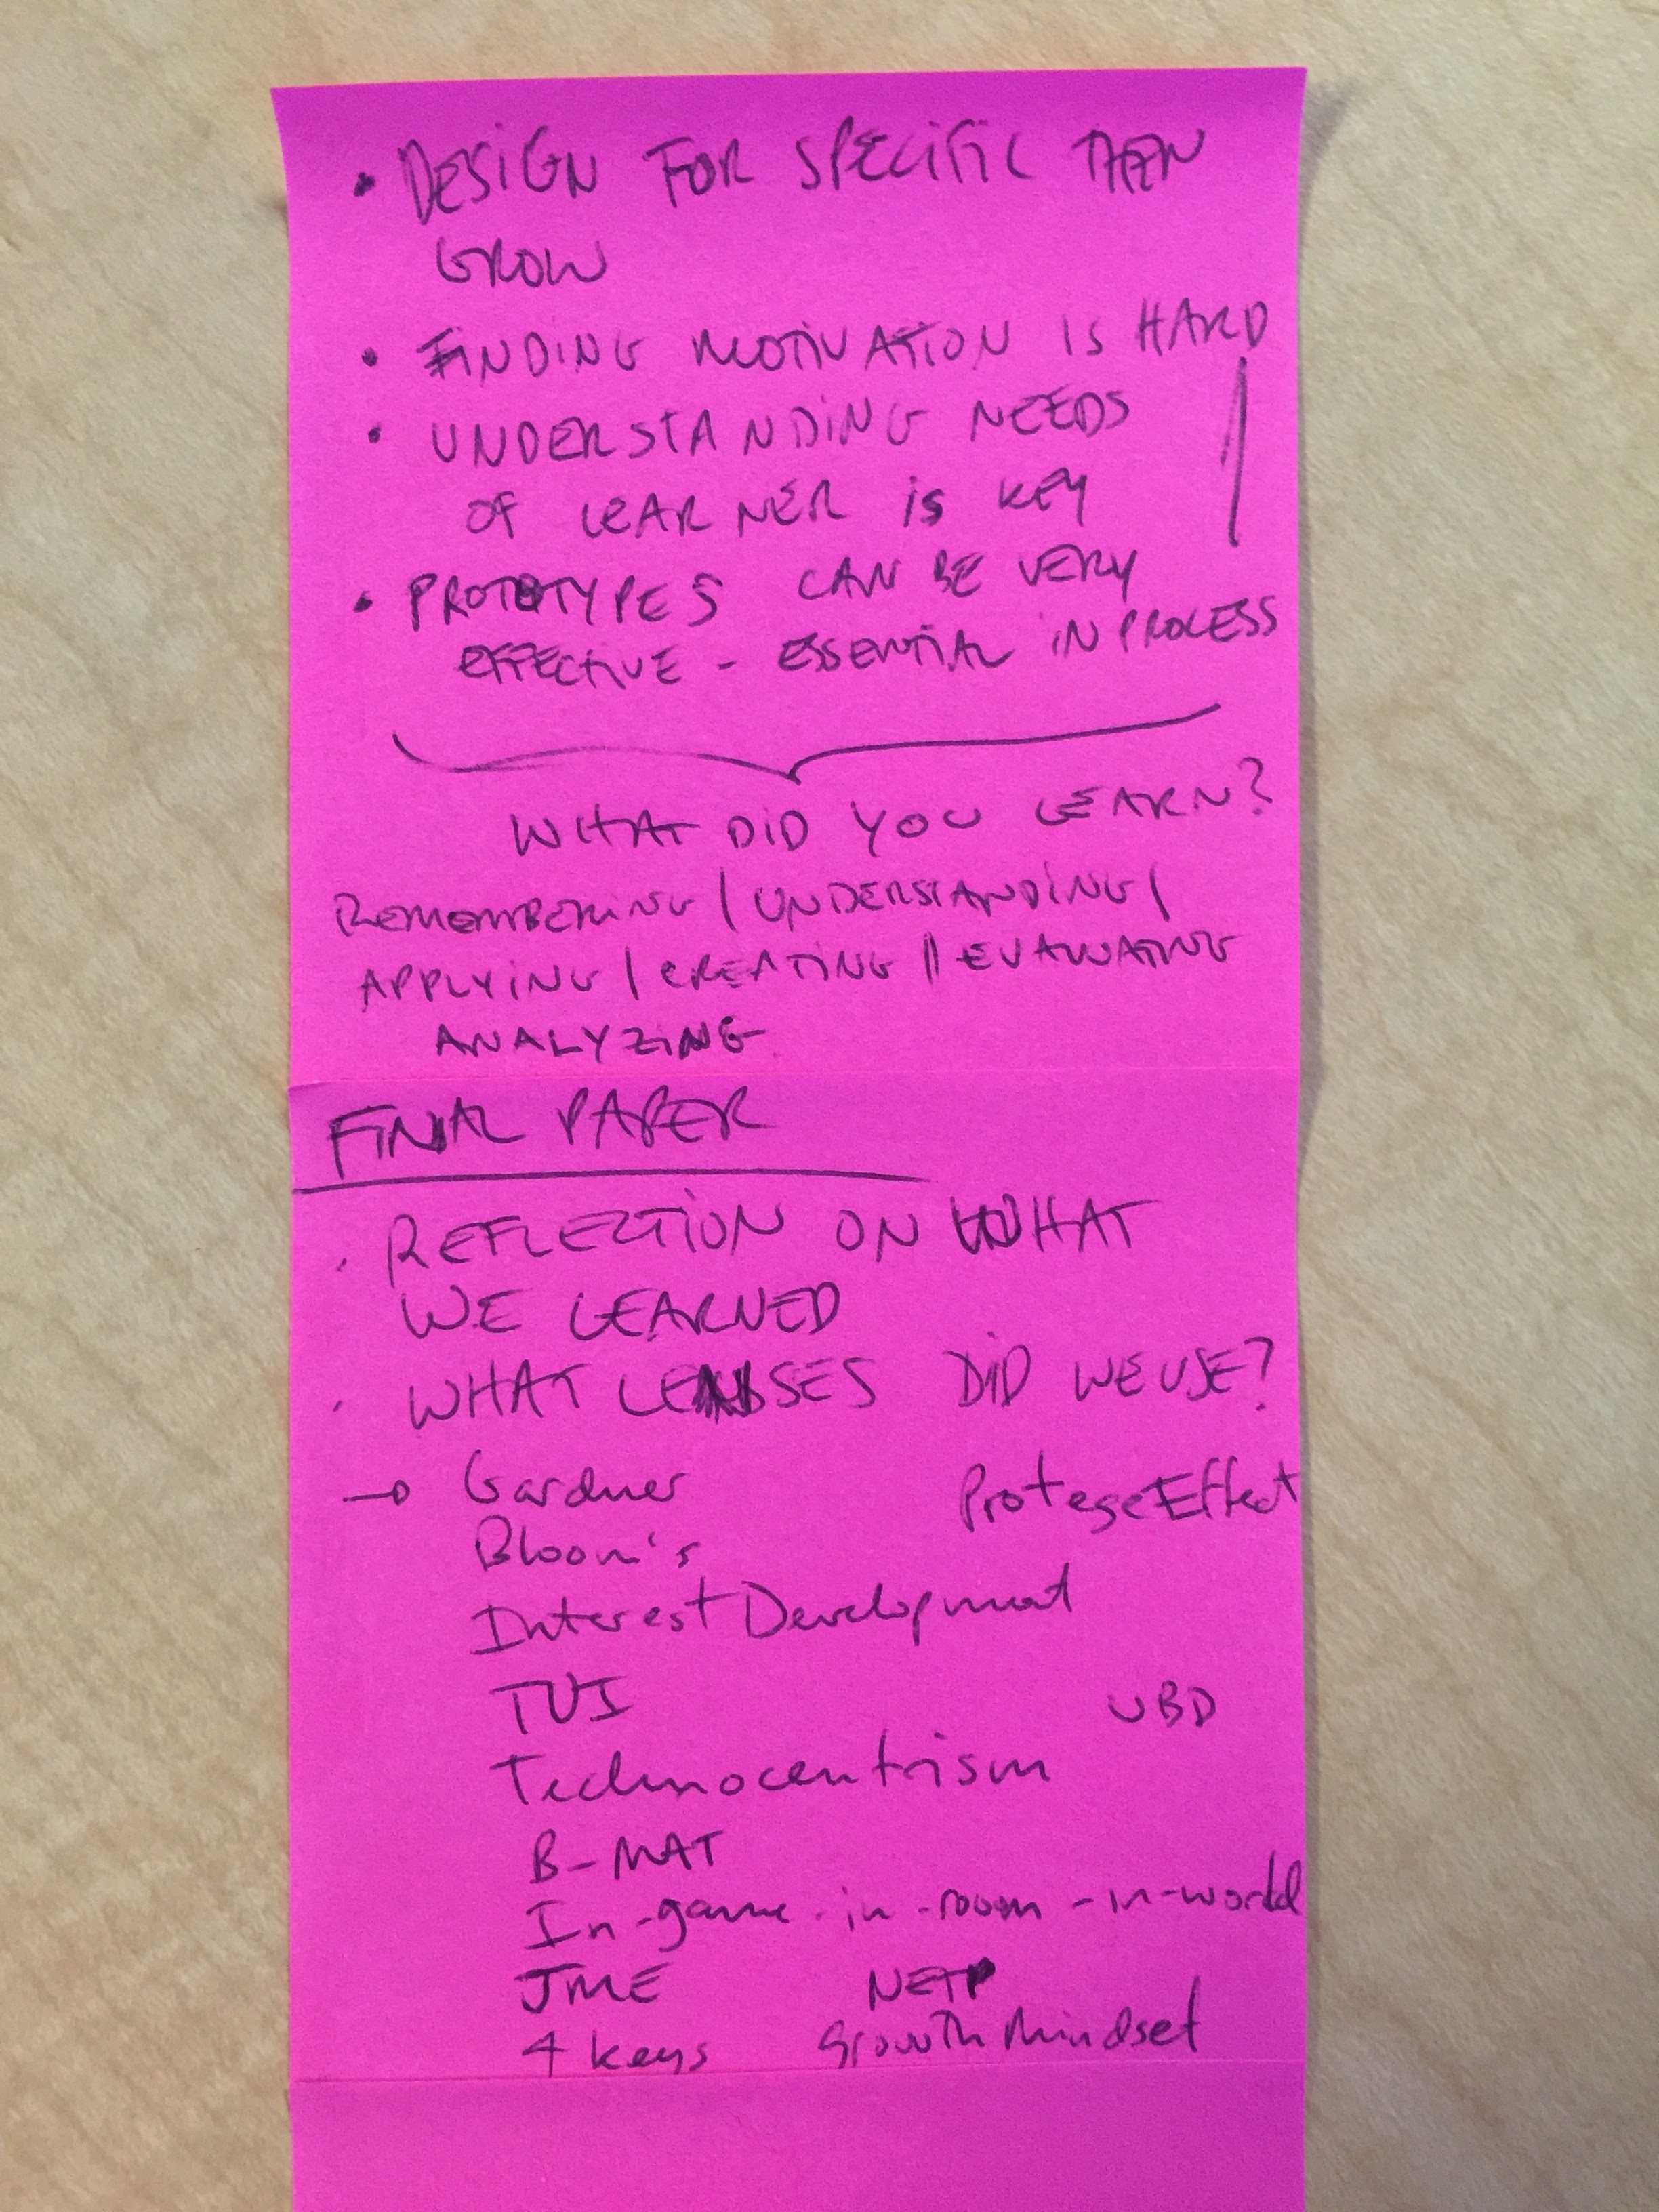 • DESIGN FOR SPECIFIC THEN
GROW
• FINDING MOTIVATION IS HARD
• UNDERSTANDING NEEDS
OF LEARNER is KEY
• PROTOTYPES CAN BE VERY
EFFECTIVE - ESSENTIAL IN PROCESS
WHAT DID YOU LEARN?
REMEMBERING / UNDERSTANDING /
APPLYING / CREATING // EVALUATING
ANALYZING
FINAL PAPER
• REFLECTION ON WHAT
WE LEARNED
• WHAT LENSES DID WE USE?
→ Gardner Protege Effect
Bloom's
Interest Development
TUI UBD
Technocentrism
B-MAT
In-game-in-room-in-world
JME NETP
4 keys Growth Mindset